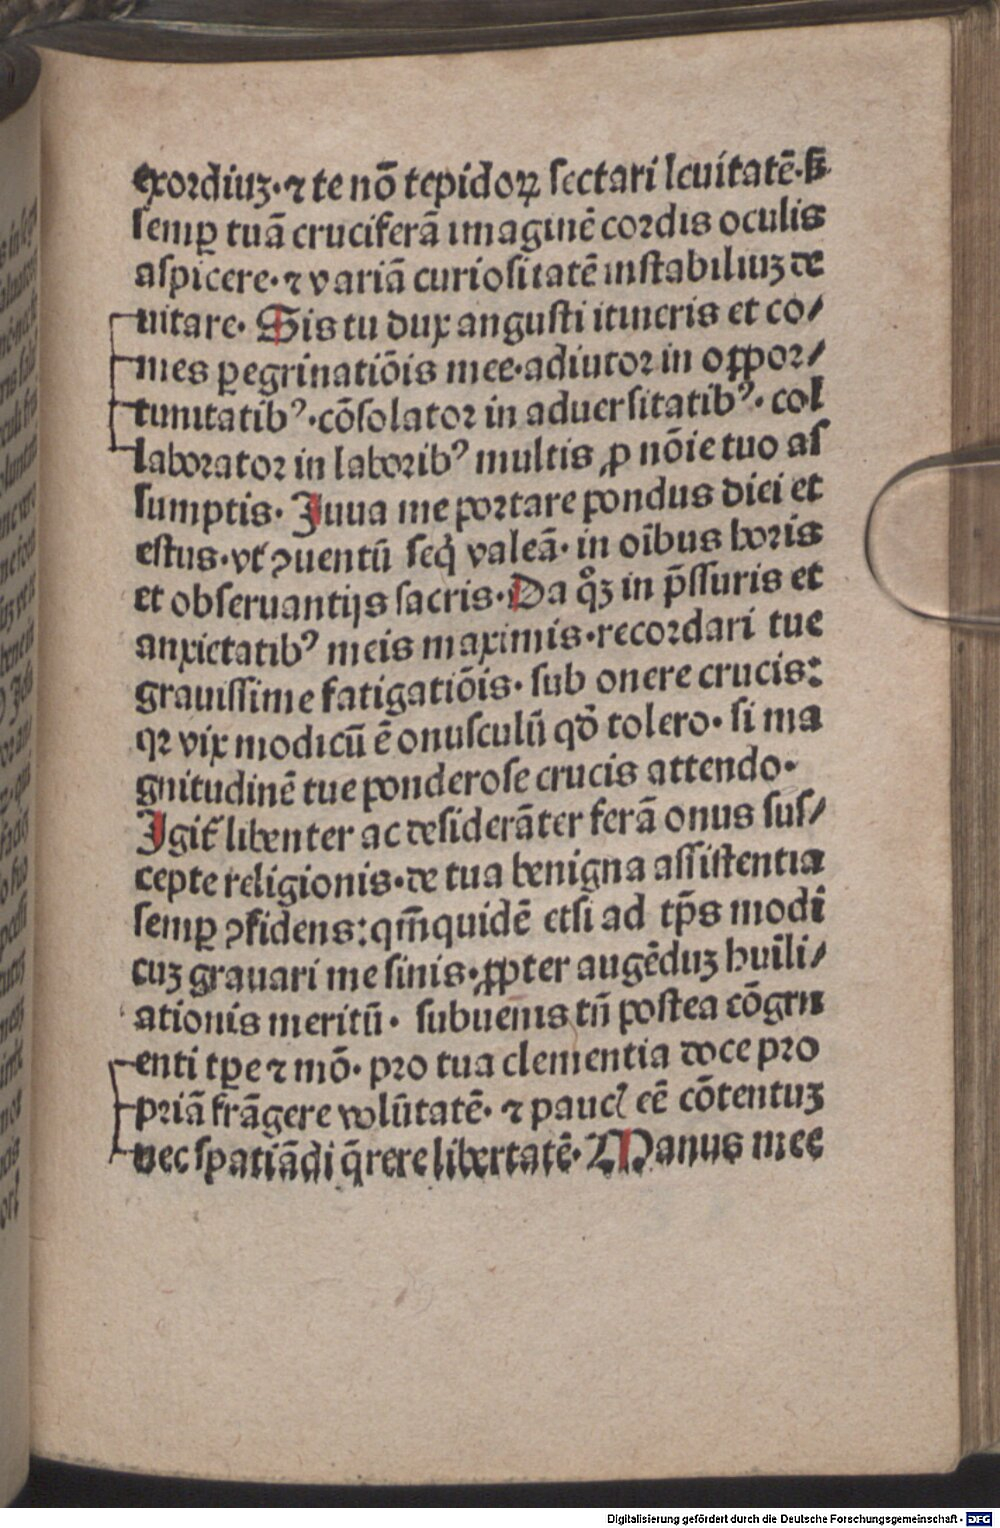 exordiuꝫ· ⁊ te nõ tepidoꝝ sectari leuitatẽ· sꝫ
semꝑ tuã cruciferã imaginẽ cordis oculis
aspicere· ⁊ variã curiositatẽ instabiliuꝫ de
uitare· Sis tu dux angusti itineris et co/
mes ꝑegrinatiõis mee· adiutor in oꝑpor/
tunitatibꝰ· cõsolator in aduersitatibꝰ· col
laborator in laboribꝰ multis ꝓ nõie tuo as
sumptis· Iuua me portare pondus diei et
estus· vt ꝯuentũ seq̇ valeã· in oĩbus horis
et obseruantijs sacris· Da qͦꝫ in p̃ssuris et
anxietatibꝰ meis maximis· recordari tue
grauissime fatigatiõis· sub onere crucis:
qꝛ vix modicũ ẽ onusculũ qð tolero· si ma
gnitudinẽ tue ponderose crucis attendo·
Igit̃ libenter ac desiderãter ferã onus sus/
cepte religionis· de tua benigna assistentia
semꝑ ꝯfidens: qm̃quidẽ etsi ad tp̃s modi
cuꝫ grauari me sinis· ꝓpter augẽduꝫ huĩli/
ationis meritũ· subuenis tñ postea cõgru
enti tꝑe ⁊ mõ· pro tua clementia doce pro
priã frãgere volũtatẽ· ⁊ paucꝭ eẽ cõtentuꝫ
nec spatiãdi q̃rere libertatẽ· Manus mee
Digitalisierung gefördert durch die Deutsche Forschungsgemeinschaft - DFG